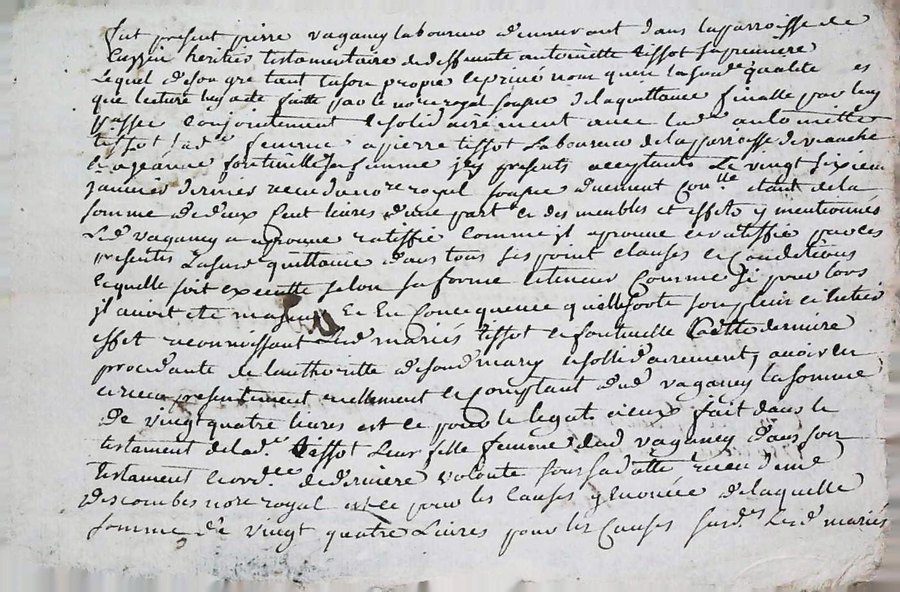 fut present pierre vaganey laboureur demeurant dans la parroisse de
Cuzzin heritier testamentaire de deffunte antoinette tissot sa premiere
Lequel de son gre tant en son propre et prive nom qu'en la sude qualite es
que lecture luy a ete faitte par le nore royal sousne de la quittance finalle par luy
passee conjointement et solidairement avec lade antoinette
tissot sade femme a pierre tissot Laboureur de la parroisse de
et a jeanne fontinelle sa femme jcy presents acceptants Le vingt six
janvier dernier receu du nore royal sousne duement conlle etant de la
somme de deux cent livres d'une part et des meubles et effets y mentionnés
Led vaganey a aprouve ratiffie comme jl aprouve et ratiffie par ces
presentes La sude quittance dans tous ses point clauses et conditions
Laquelle soit executte selon sa forme et teneur Comme si pour lors
jl avoit ete majeur Et En Concequence quelle sorte son plein et entier
effet reconnoissant les d mariés tissot et fontinelle Cette derniere
procedante de lauthoritte de son d mary et sollidairement, avoir eu
et receu presentement reellement et Comptant dud vaganey La somme
De vingt quatre livres est ce pour le legat a eux fait dans le
testament de lade tissot Leur fille femme dud vaganey dans son
testament et ordce de derniere volonte sous sa datte receu dud
Descombes nore royal et ce pour les causes y enoncée De laquelle
somme de vingt quatre Livres pour les Causes susdes Les d mariés